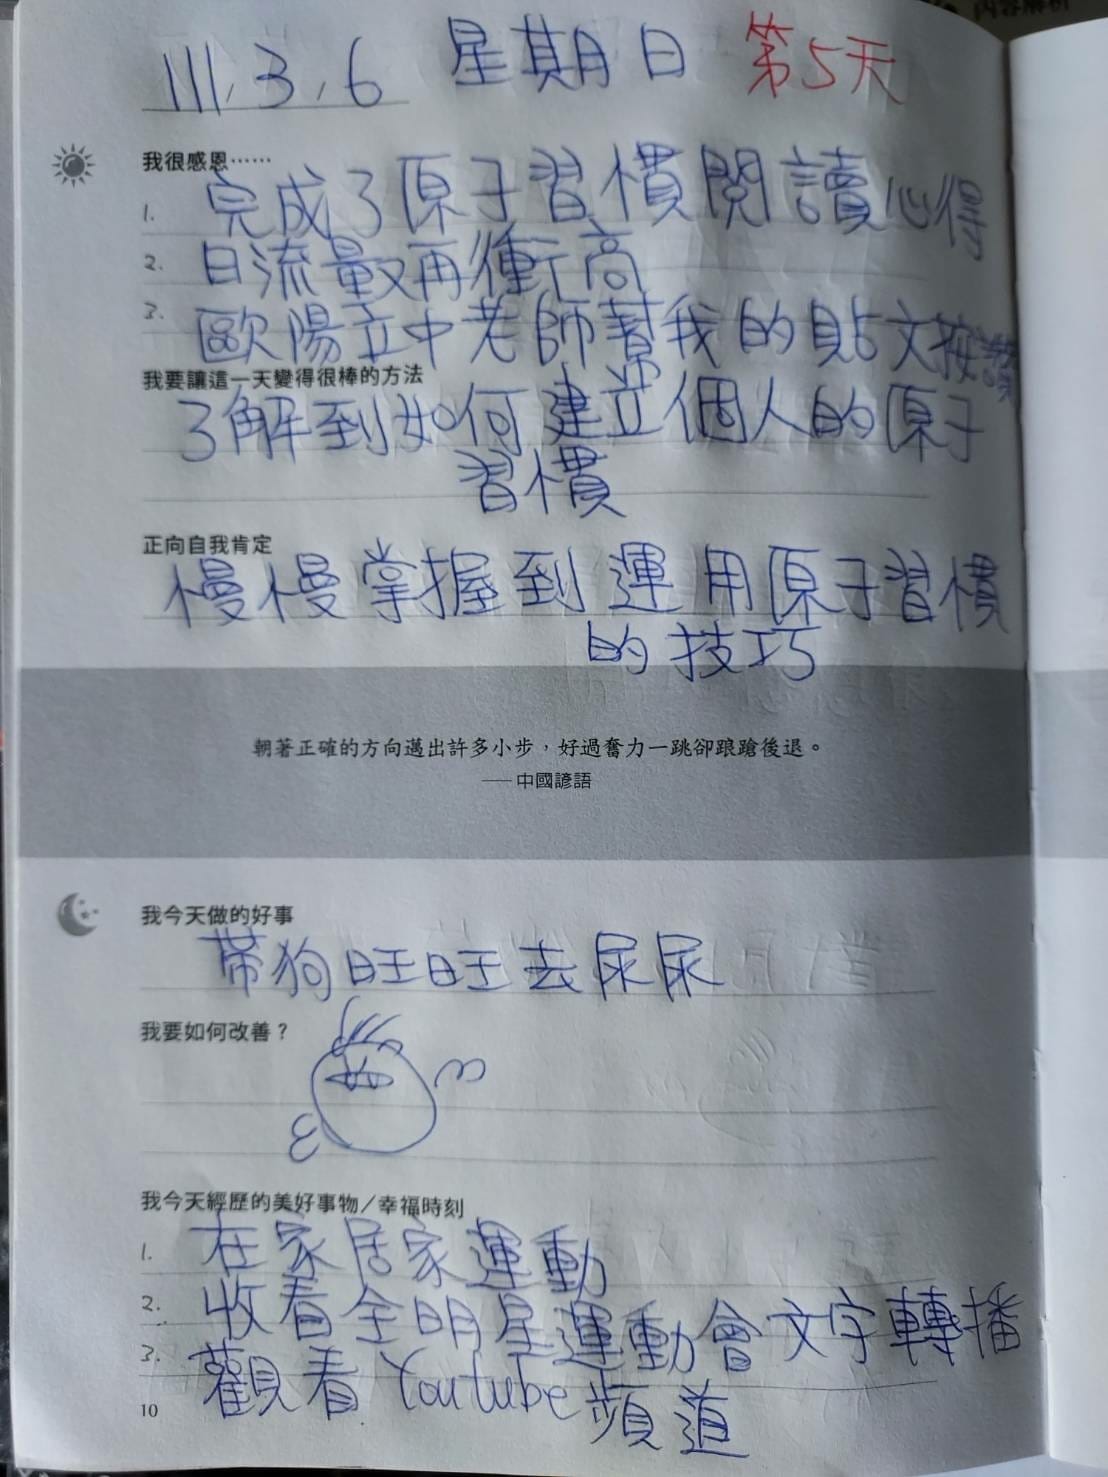 111.3.6 星期日 第5天
我很感恩……
1. 完成了原子習慣閱讀心得
2. 日流量又再衝高
3. 歐陽立中老師幫我的貼文按讚
我要讓這一天變得很棒的方法
了解到如何建立個人的原子
習慣
正向自我肯定
慢慢掌握到運用原子習慣
的技巧
朝著正確的方向邁出許多小步，好過奮力一跳卻踉蹌後退。
——中國諺語
我今天做的好事
帶狗旺旺去尿尿
我要如何改善？
我今天經歷的美好事物／幸福時刻
1. 在家居家運動
2. 收看全明星運動會文字轉播
3. 觀看Youtube頻道
10